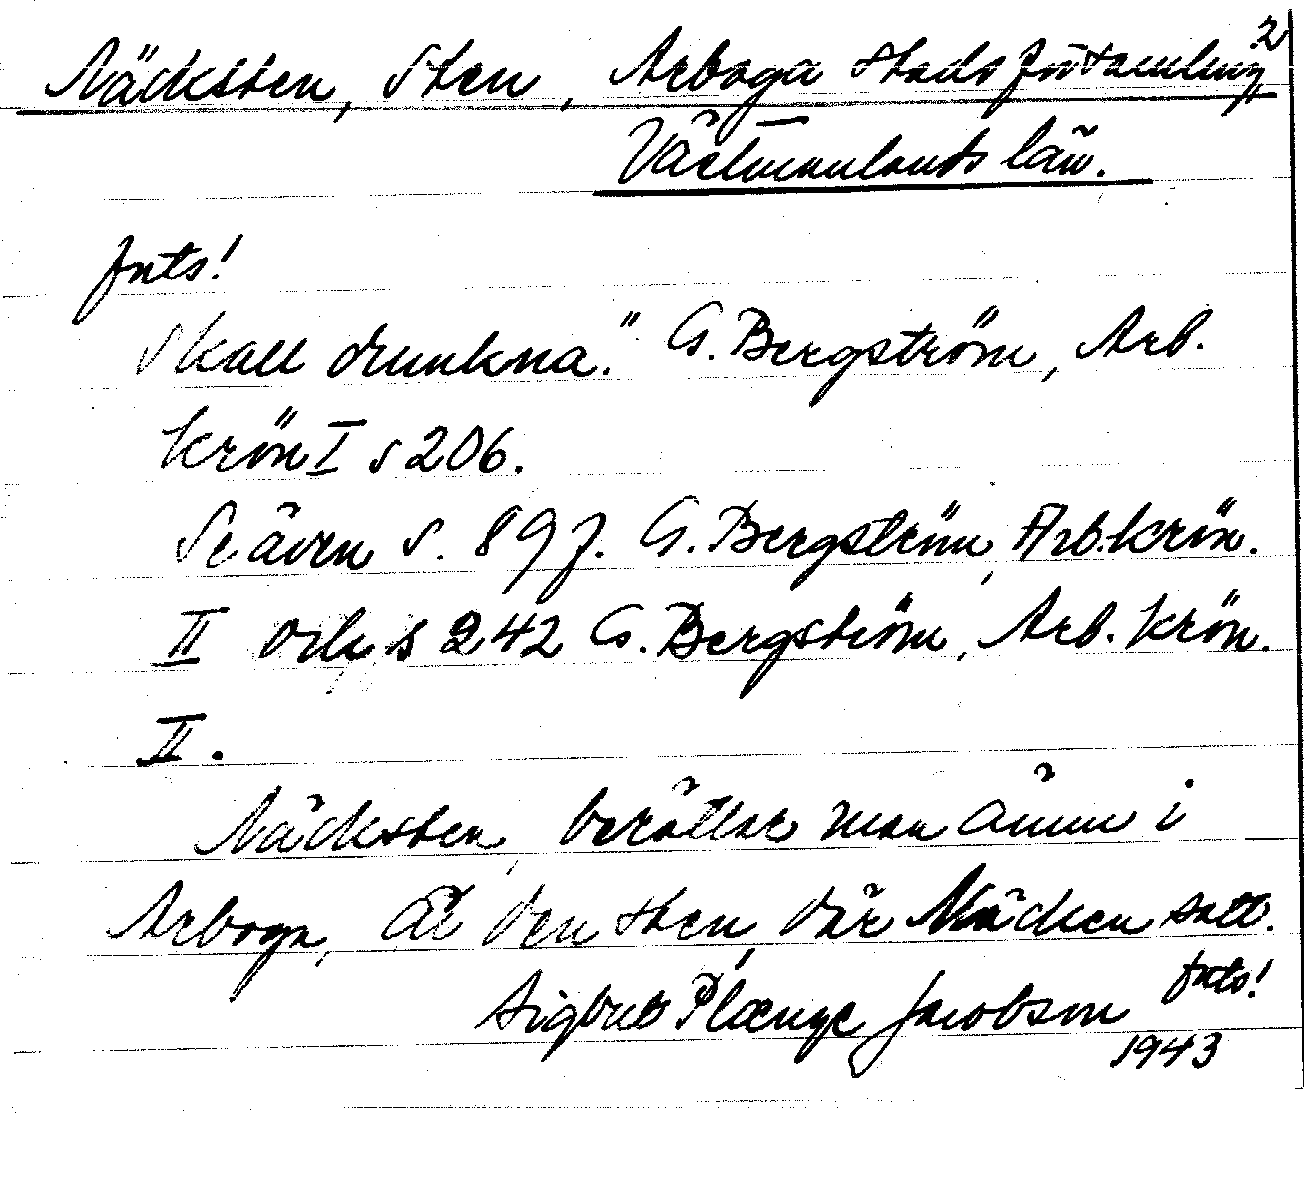 2
Näcksten, Sten, Arboga stadsförsamling
Västmanlands län.
forts!
skall drunkna." G. Bergström, Arb.
krön I s 206.
Se även s. 89 f. G. Bergström, Arb. krön.
II och s 242 G. Bergström, Arb. krön.
II.
Näcksten, berättar man ännu i
Arboga, är den sten, där Näcken satt.
forts!
Sigbrit Plænge Jacobson
1943